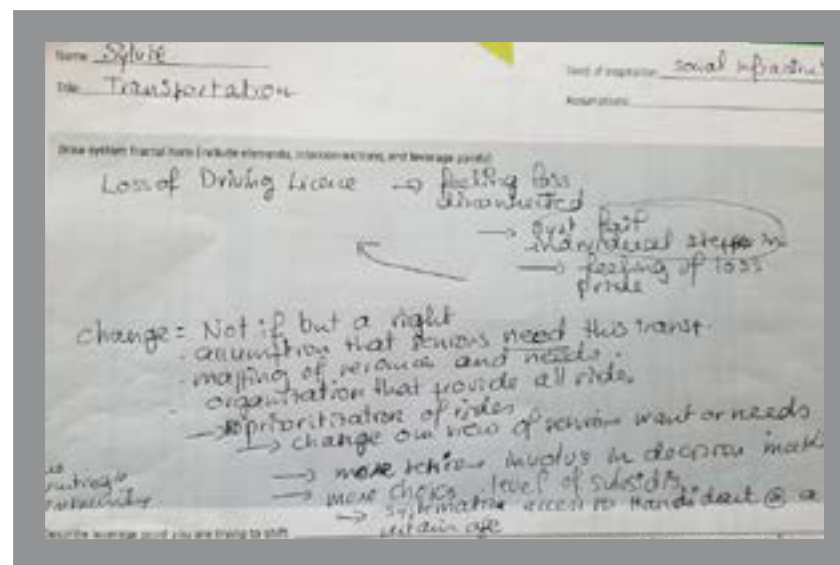 Name Sylvie
Title Transportation
Level of inspiration social infrastruc
Assumptions
Draw system fractal here (include elements, interconnections, and leverage points)
Loss of Driving Licence → feeling loss
disconnected
→ syst fail
individual step in
→ feeling of loss
pride
change = Not if but a right
. assumption that seniors need this transt.
. mapping of resources and needs.
. organisation that provide all rides.
→ prioritization of rides
→ change our view of seniors want or needs
→ more seniors involve in decision mak
→ more choice level of subsidies
→ systematic access to Handidart @ a
certain age
leverage point you are trying to shift